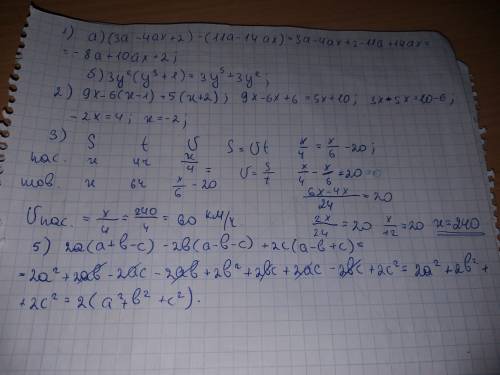 1) а) (3a - 4ax + 2) - (11a - 14ax) = 3a - 4ax + 2 - 11a + 14ax =
= - 8a + 10ax + 2;
б) 3y²(y³ + 1) = 3y⁵ + 3y²;
2) 9x - 6(x - 1) = 5(x + 2); 9x - 6x + 6 = 5x + 10; 3x - 5x = 10 - 6;
- 2x = 4; x = -2;
3) S t V S = Vt x/4 = x/6 - 20;
пас. x 4ч x/4 = V = S/t x/4 - x/6 = 20
тов x 6ч x/6 - 20 (6x - 4x)/24 = 20
Vпас. = x/4 = 240/4 = 60 км/ч 2x/24 = 20 x/12 = 20 x = 240
5) 2a(a + b - c) - 2b(a - b - c) + 2c(a - b + c) =
= 2a² + 2ab - 2ac - 2ab + 2b² + 2bc + 2ac - 2bc + 2c² = 2a² + 2b² +
+ 2c² = 2(a² + b² + c²).